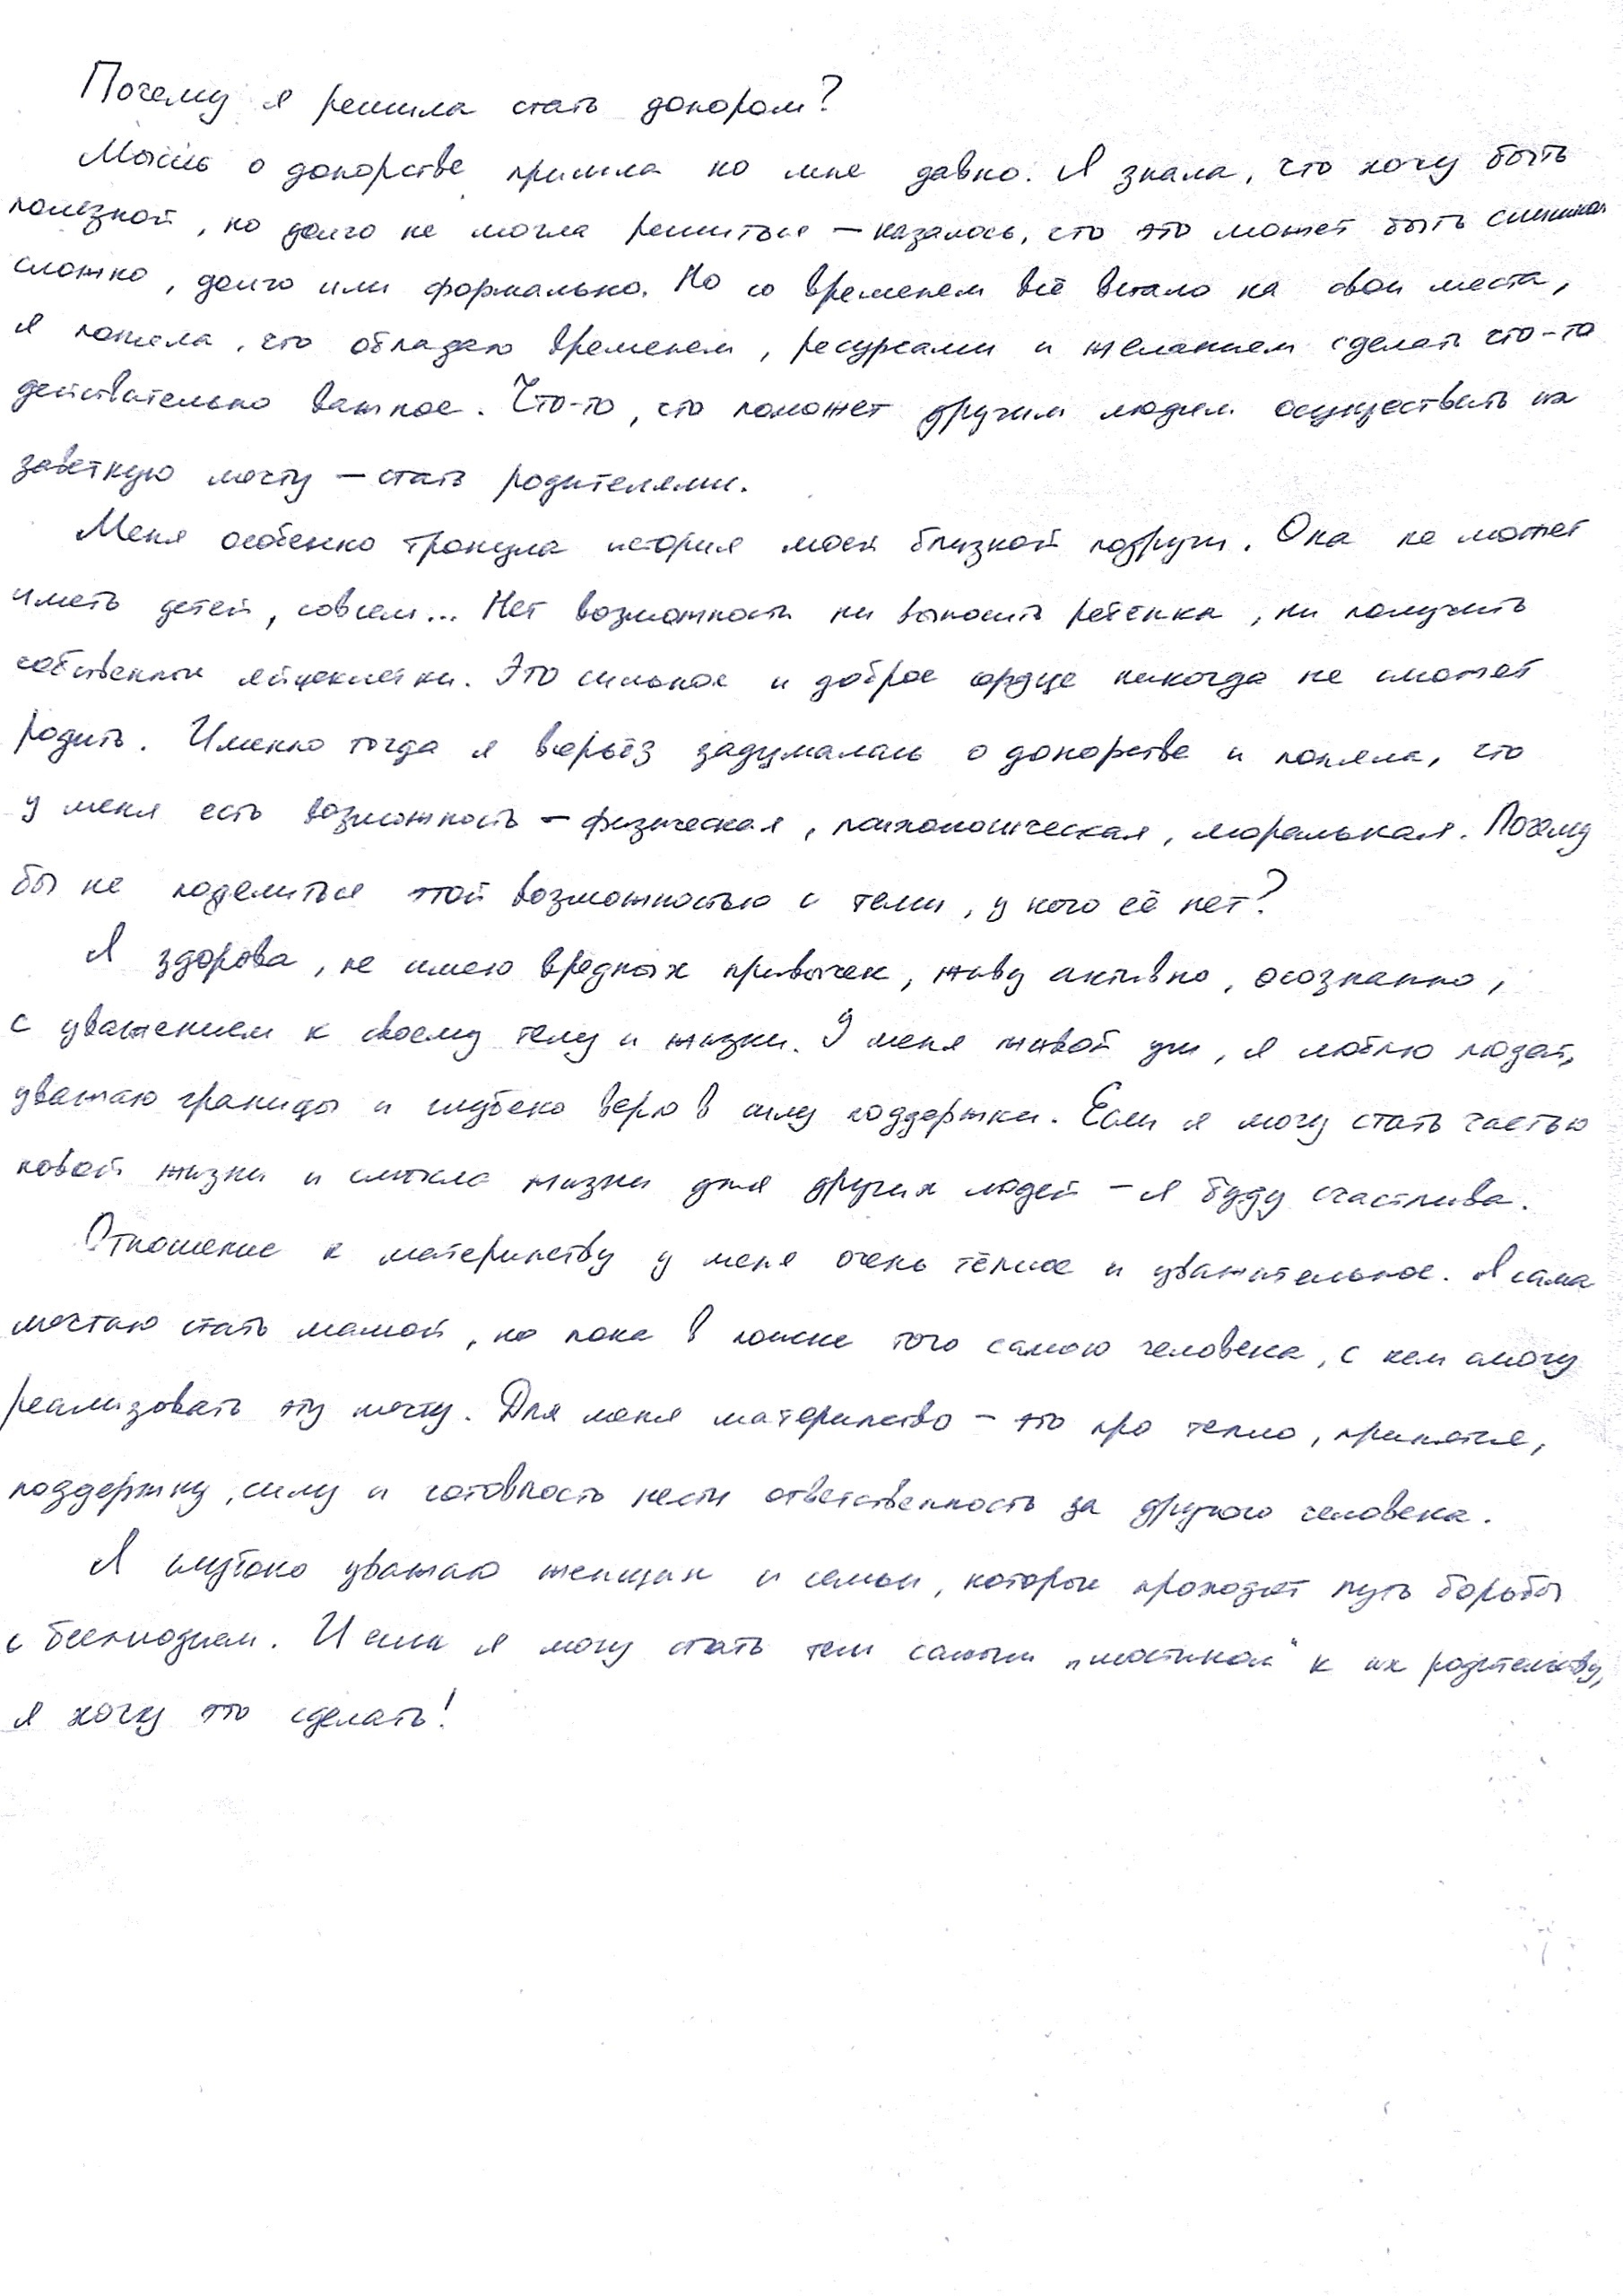 Почему я решила стать донором?
Мысль о донорстве пришла ко мне давно. Я знала, что хочу быть
полезной, но долго не могла решиться – казалось, что это может быть слишком
сложно, долго или формально. Но со временем всё встало на свои места,
я поняла, что обладаю временем, ресурсами и желанием сделать что-то
действительно важное. Что-то, что поможет другим людям осуществить их
заветную мечту – стать родителями.
Меня особенно тронула история моей близкой подруги. Она не может
иметь детей, совсем... Нет возможности ни выносить ребёнка, ни получить
собственные яйцеклетки. Это сильное и доброе сердце никогда не сможет
родить. Именно тогда я всерьёз задумалась о донорстве и поняла, что
у меня есть возможность – физическая, психологическая, моральная. Почему
бы не поделиться этой возможностью с теми, у кого её нет?
Я здорова, не имею вредных привычек, живу активно, осознанно,
с уважением к своему телу и жизни. У меня живой ум, я люблю людей,
уважаю границы и глубоко верю в силу поддержки. Если я могу стать частью
новой жизни и смысла жизни для других людей – я буду счастлива.
Отношение к материнству у меня очень тёплое и уважительное. Я сама
мечтаю стать мамой, но пока в поиске того самого человека, с кем смогу
реализовать эту мечту. Для меня материнство – это про тепло, принятие,
поддержку, силу и готовность нести ответственность за другого человека.
Я глубоко уважаю женщин и семьи, которые проходят путь борьбы
с бесплодием. И если я могу стать тем самым „мостиком“ к их родительству,
я хочу это сделать!